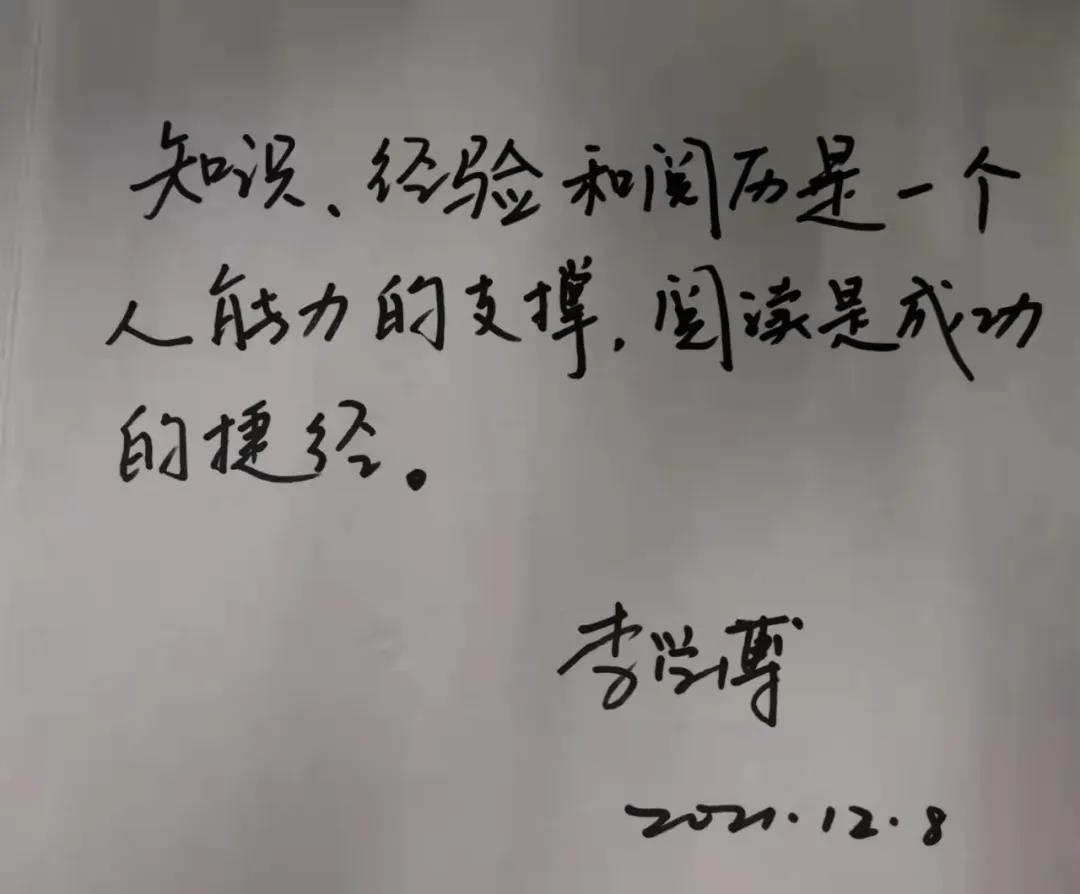 知识、经验和阅历是一个
人能力的支撑，阅读是成功
的捷经。
李兴博
2021.12.8